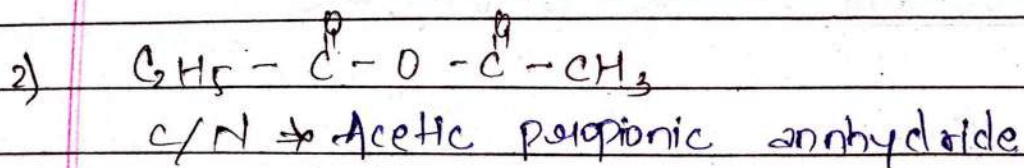 O O
2) C2H5 - C - O - C - CH3
C/N → Acetic propionic annhydride